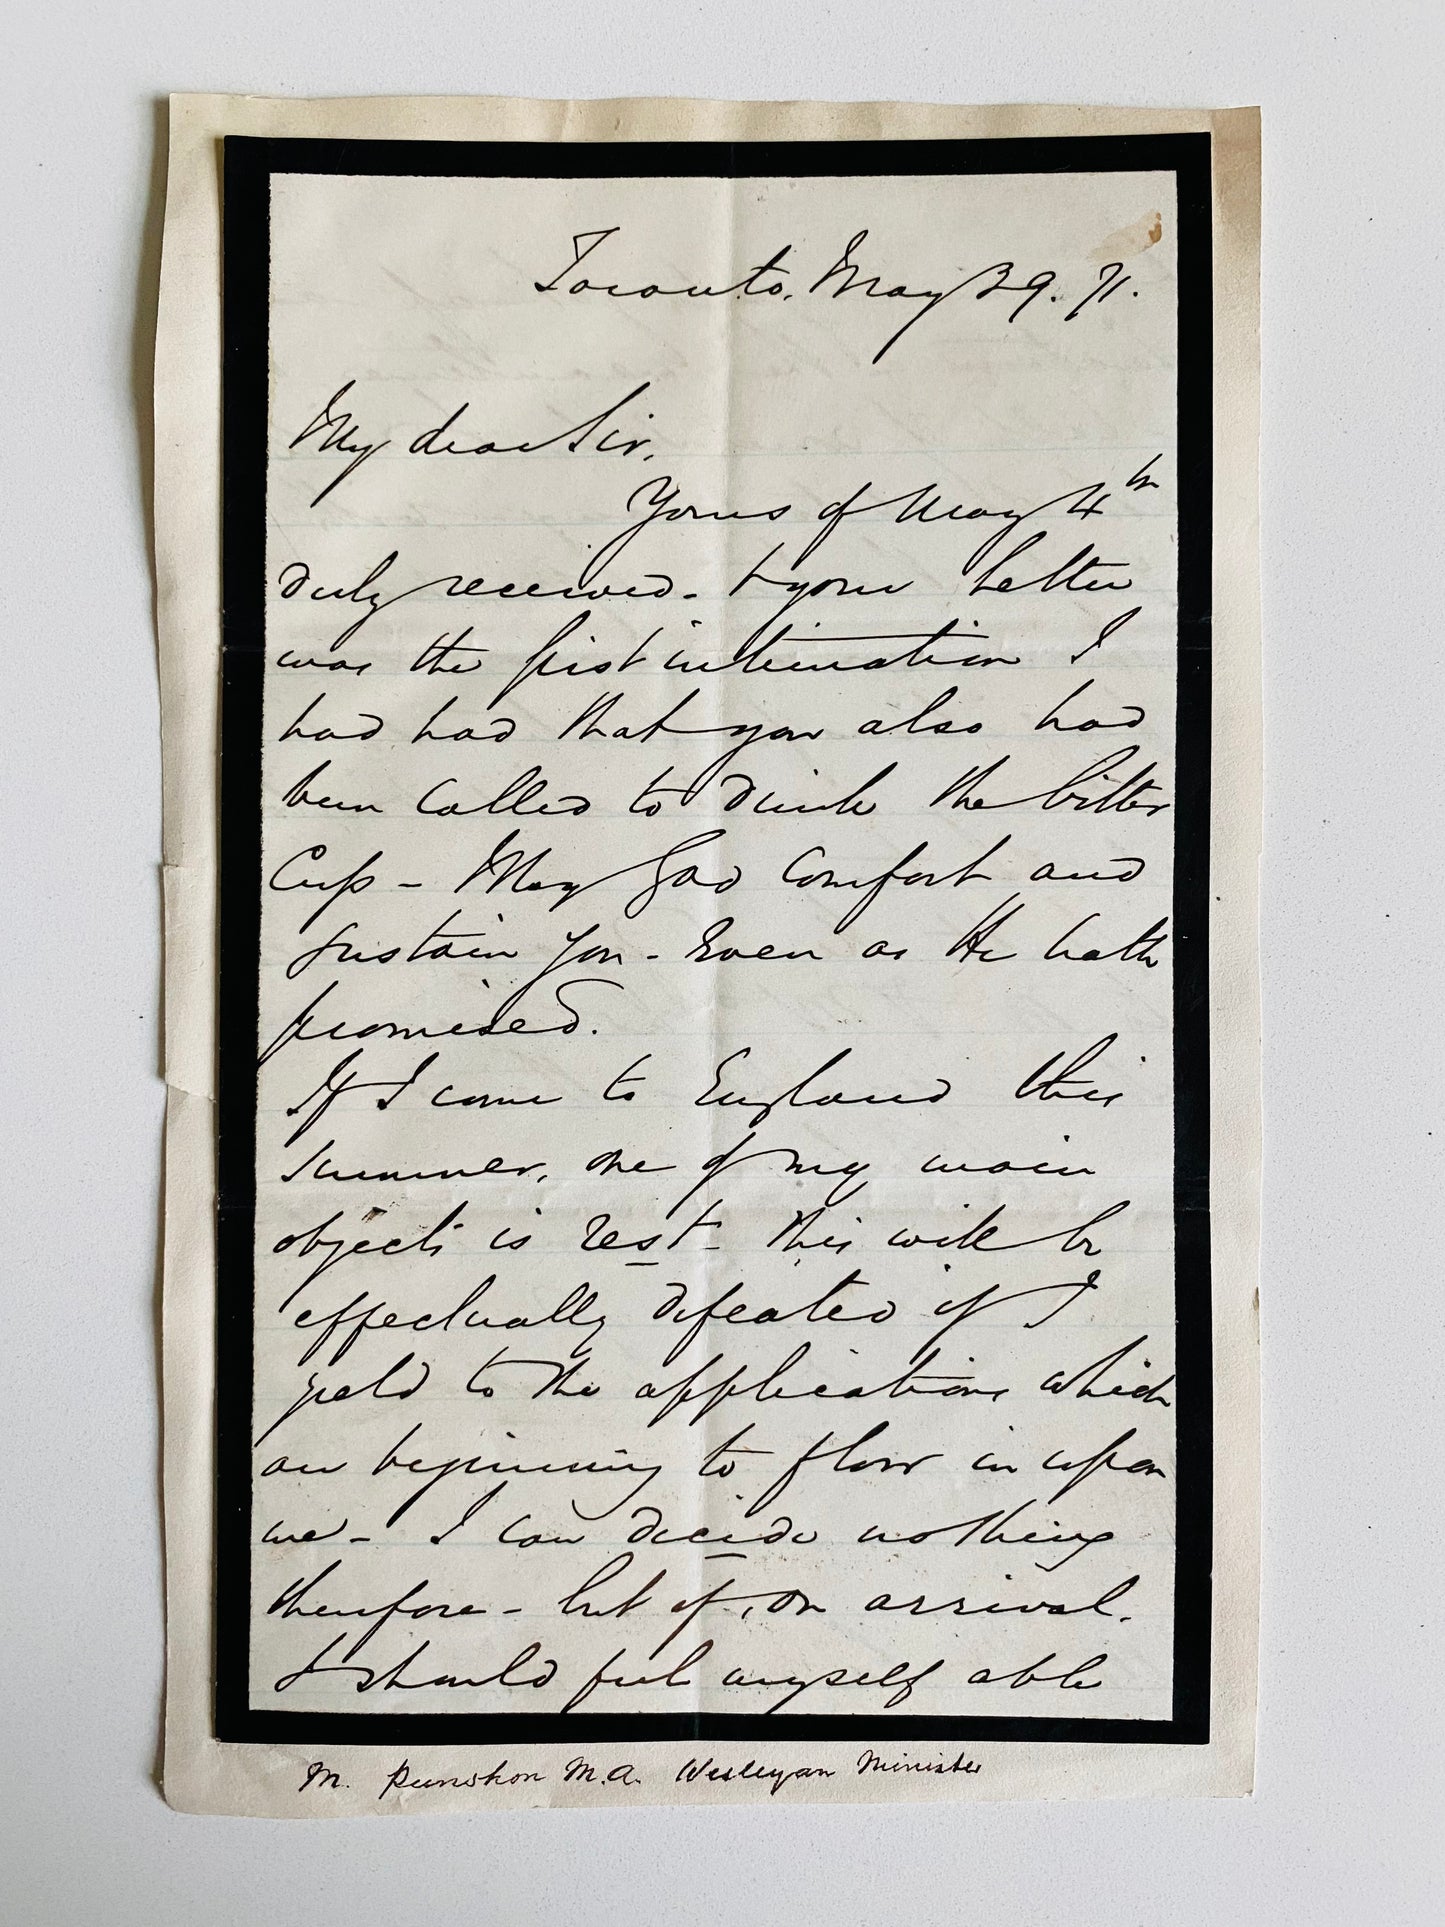 Toronto. May 29. 71.
My dear Sir,
Yours of May 4th
duly received - & your letter
was the first intimation I
had had that you also had
been called to drink the bitter
Cup - May God comfort and
sustain you - Even as He hath
promised.
If I come to England this
summer, one of my main
objects is rest - this will be
effectually defeated if I
yield to the applications which
are beginning to flow in upon
me - I can decide nothing
therefore - but if, on arrival,
I should feel myself able
M. Punshon M.A. Wesleyan Minister